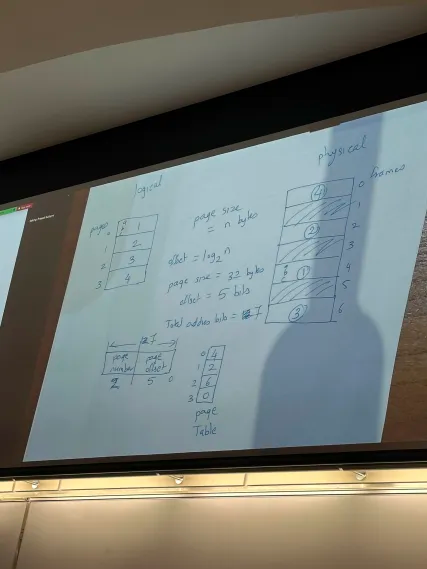 logical
physical
pages
frames
1
2
3
4
1
2
3
page size
= n bytes
offset = log2 n
page size = 32 bytes
offset = 5 bits
Total address bits = 7
4
2
1
3
0
1
2
3
4
5
6
7
page number
page offset
2 5 0
0 4
1 2
2 6
3 0
page
Table